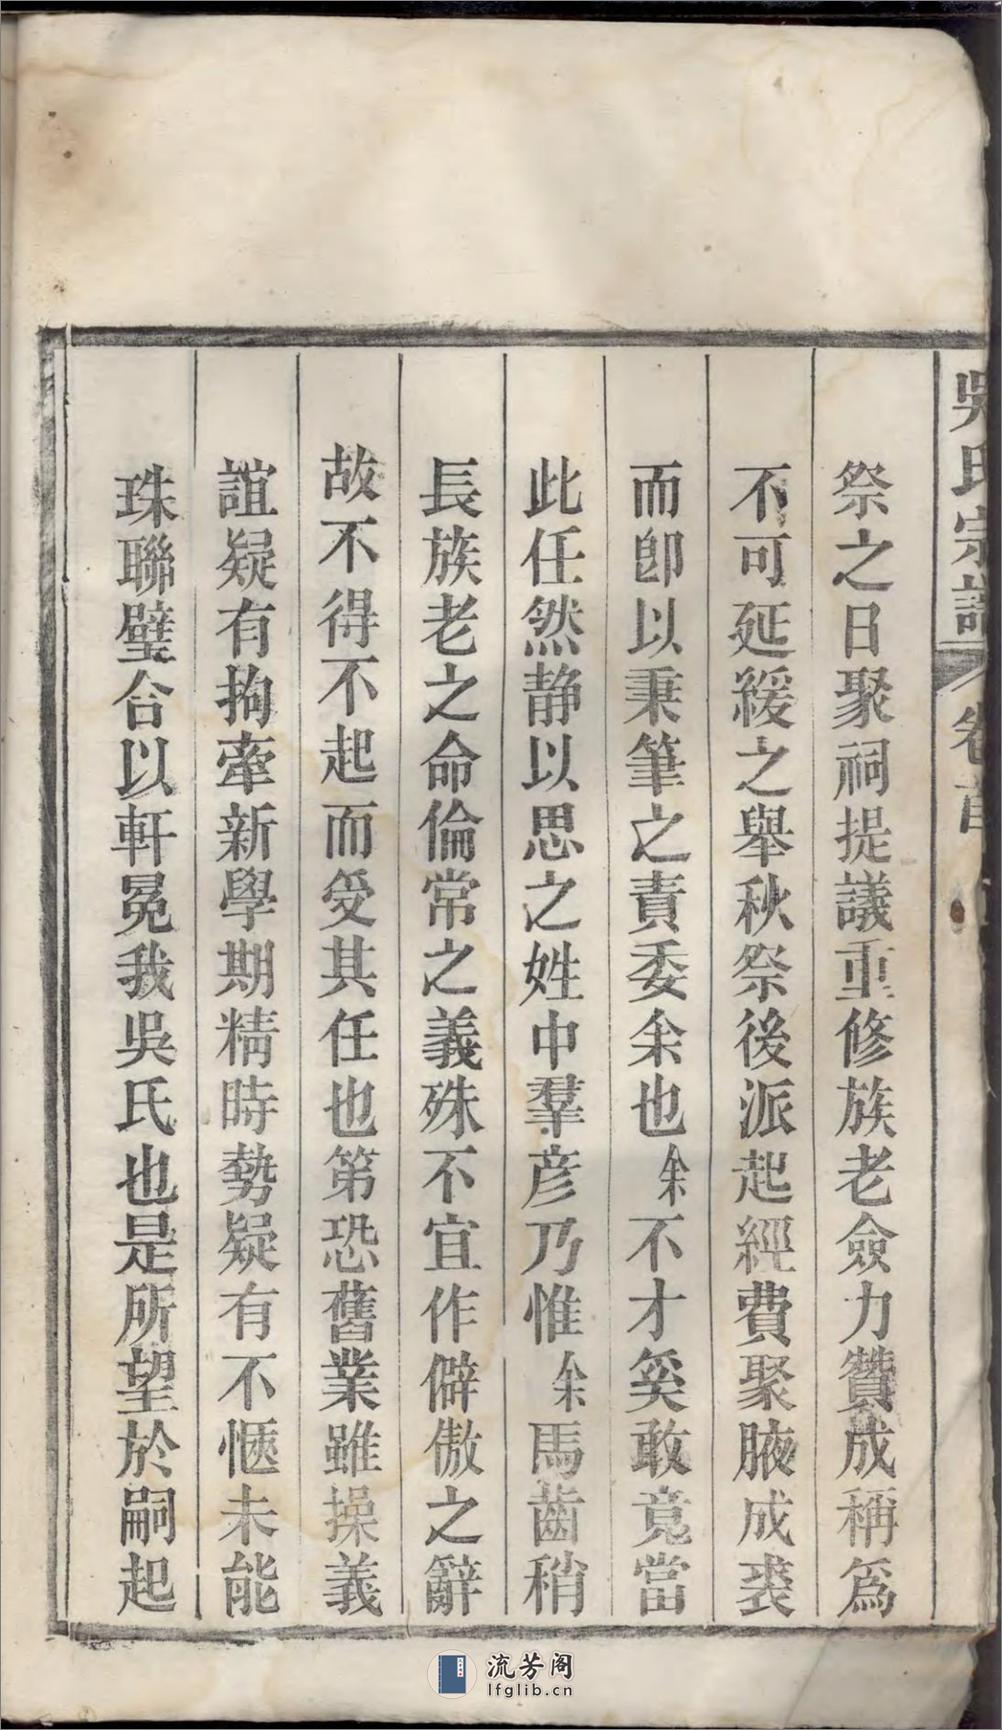 吳氏宗譜 卷首
祭之日聚祠提議重修族老僉力贊成稱為
不可延緩之舉秋祭後派起經費聚腋成裘
而卽以秉筆之責委余也余不才奚敢竟當
此任然静以思之姓中羣彦乃惟余馬齒稍
長族老之命倫常之義殊不宜作僻傲之辭
故不得不起而受其任也第恐舊業雖操義
誼疑有拘牽新學期精時勢疑有不愜未能
珠聯璧合以軒冕我吳氏也是所望於嗣起
流芳阁
lfglib.cn